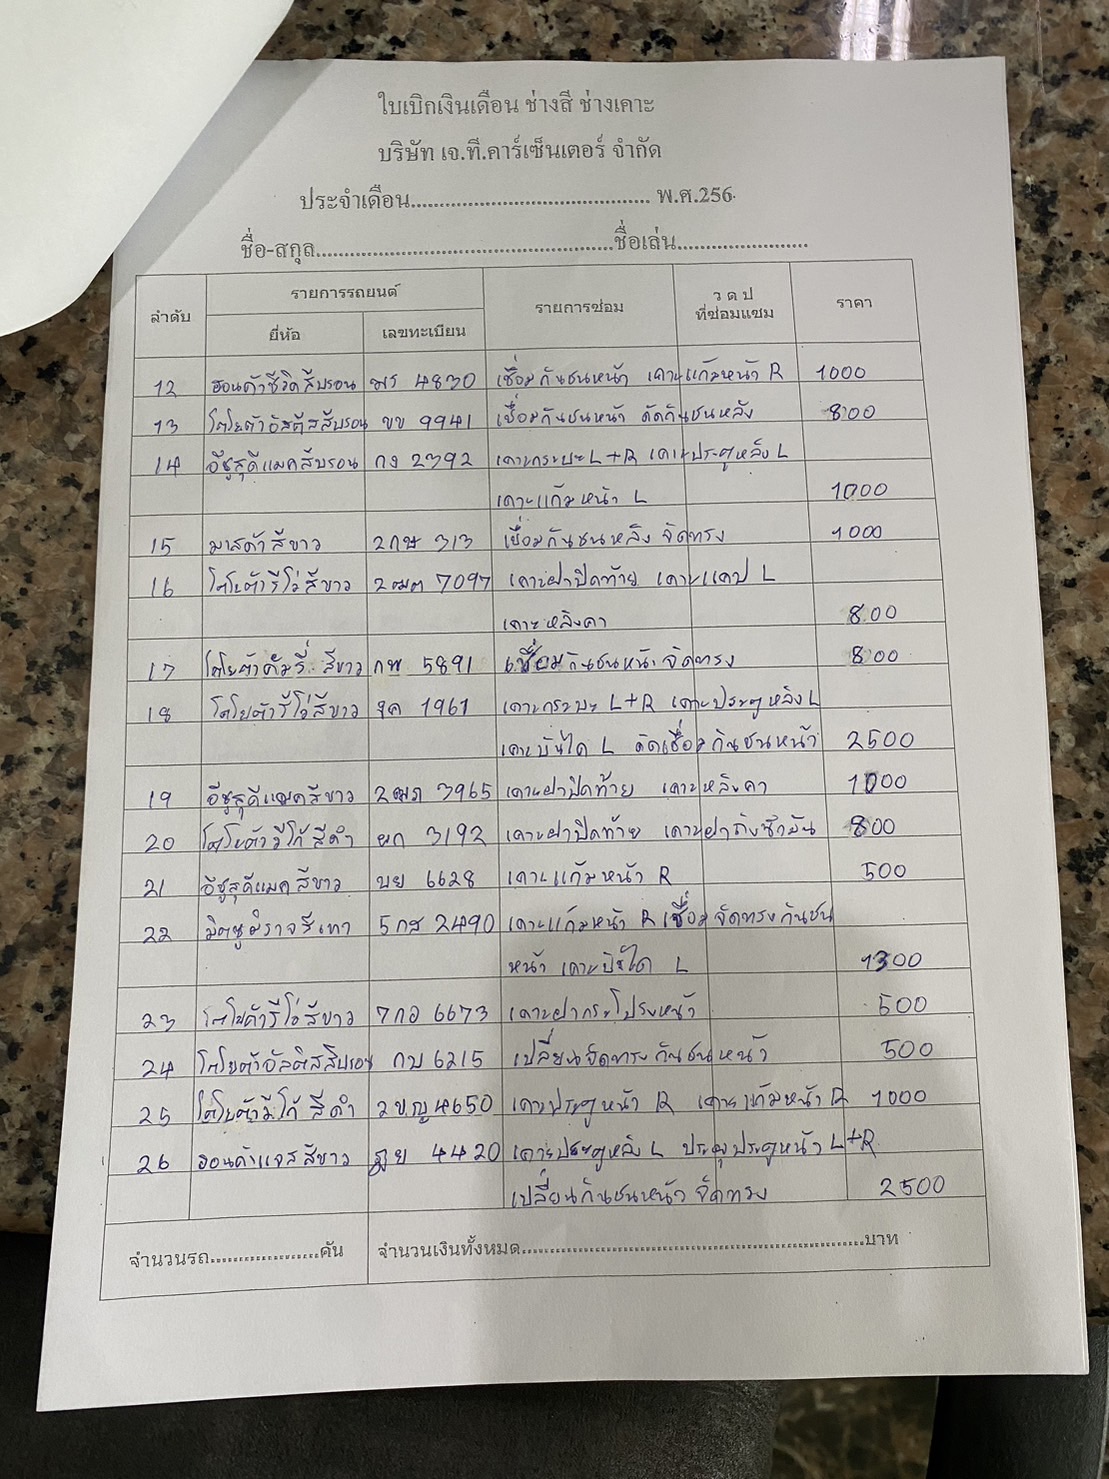 ใบเบิกเงินเดือน ช่างสี ช่างเคาะ
บริษัท เจ.ที.คาร์เซ็นเตอร์ จำกัด
ประจำเดือน.......................................... พ.ศ.256
ชื่อ-สกุล.....................................................ชื่อเล่น.......................
ลำดับ รายการรถยนต์ รายการซ่อม ว ด ป ที่ซ่อมแซม ราคา
ยี่ห้อ เลขทะเบียน
12 ฮอนด้าซีวิคสีบรอน พร 4830 เชื่อมกันชนหน้า เคาะแก้มหน้า R 1000
13 โตโยต้าอัลติสสีบรอน ขข 9941 เชื่อมกันชนหน้า ดัดกันชนหลัง 800
14 อีซูสุดีแมคสีบรอน กง 2392 เคาะกระบะ L+R เคาะประตูหลัง L
เคาะแก้มหน้า L 1000
15 มาสด้าสีขาว 2กษ 313 เชื่อมกันชนหลัง จัดทรง 1000
16 โตโยต้ารีโว่สีขาว 2ฒต 7097 เคาะฝาปิดท้าย เคาะแคป L
เคาะหลังคา 800
17 โตโยต้าคัมรี่ สีขาว กพ 5891 เชื่อมกันชนหน้า จัดทรง 800
18 โตโยต้ารีโว่สีขาว 1961 เคาะกระบะ L+R เคาะประตูหลัง L
เคาะบันได L ดัดเชื่อมกันชนหน้า 2500
19 อีซูสุดีแมคสีขาว 2ฒภ 3965 เคาะฝาปิดท้าย เคาะหลังคา 1000
20 โตโยต้าวีโก้สีดำ ผก 3192 เคาะฝาปิดท้าย เคาะฝาถังน้ำมัน 800
21 อีซูสุดีแมคสีขาว บย 6628 เคาะแก้มหน้า R 500
22 มิตซูมิราจสีเทา 5กส 2490 เคาะแก้มหน้า R เชื่อมจัดทรงกันชน
หน้า เคาะบันได L 1300
23 โตโยต้ารีโว่สีขาว 7กอ 6673 เคาะฝากระโปรงหน้า 500
24 โตโยต้าอัลติสสีบรอน กบ 6215 เปลี่ยนจัดทรงกันชนหน้า 500
25 โตโยต้าวีโก้ สีดำ 2ขญ 4650 เคาะประตูหน้า R เคาะแก้มหน้า R 1000
26 ฮอนด้าแจสสีขาว ฎย 4420 เคาะประตูหลัง L ประตูหน้า L+R
เปลี่ยนกันชนหน้า จัดทรง 2500
จำนวนรถ...................คัน จำนวนเงินทั้งหมด.............................................................บาท